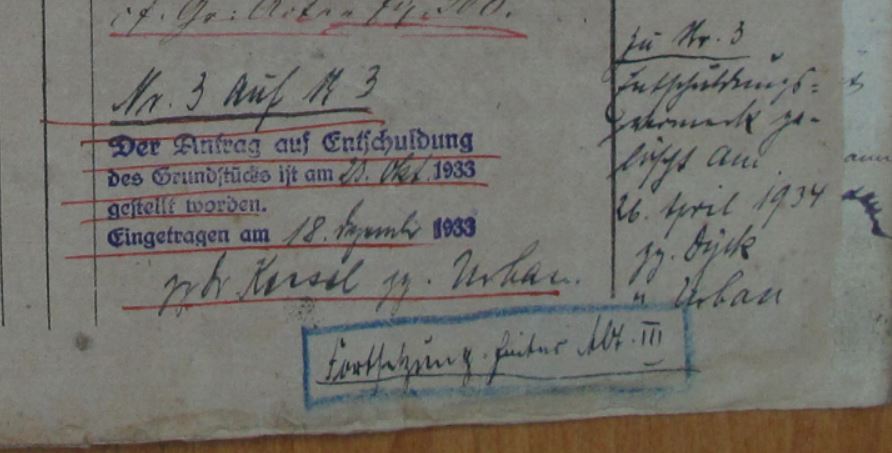 cf. Gr: Akten
Nr. 3 auf N 3
Der Antrag auf Entschuldung
des Grundstücks ist am 23. Okt. 1933
gestellt worden.
Eingetragen am 18. Dezember 1933
gz. Dr Kessel gz. Urban.
Fortsetzung hinter Abt. III
zu Nr. 3
Entschuldungs=
vermerk ge-
löscht am
26. April 1934
gz. Dyck
" Urban